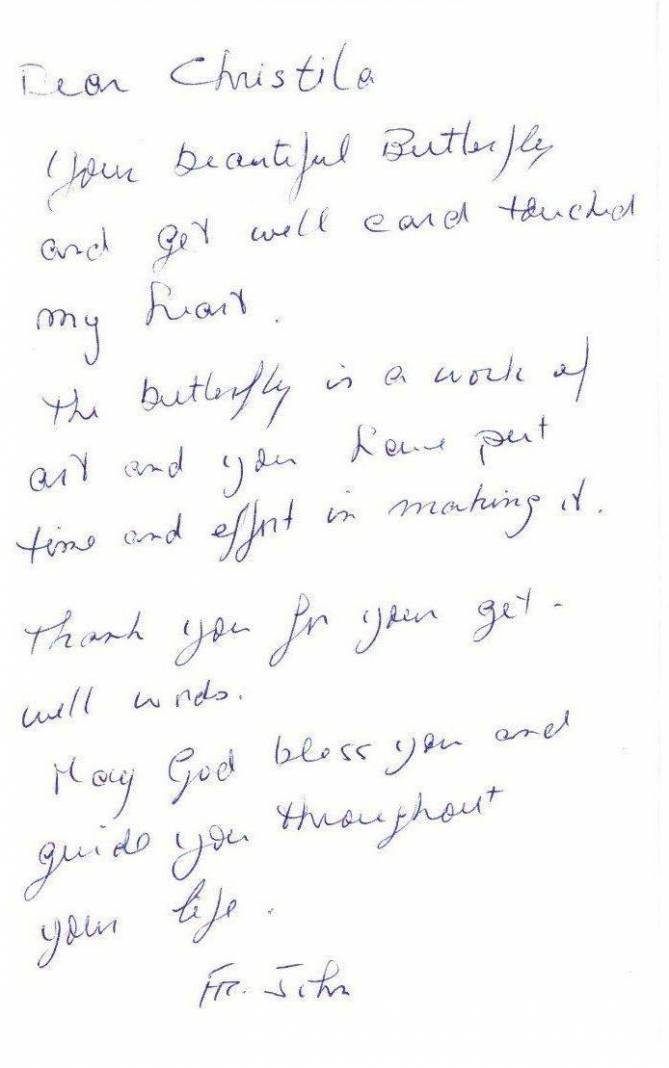 Dear Christila
Your beautiful Butterfly
and get well card touched
my heart.
The butterfly is a work of
art and you have put
time and effort in making it.
Thank you for your get-
well words.
May God bless you and
guide you throughout
your life.
Fr. John